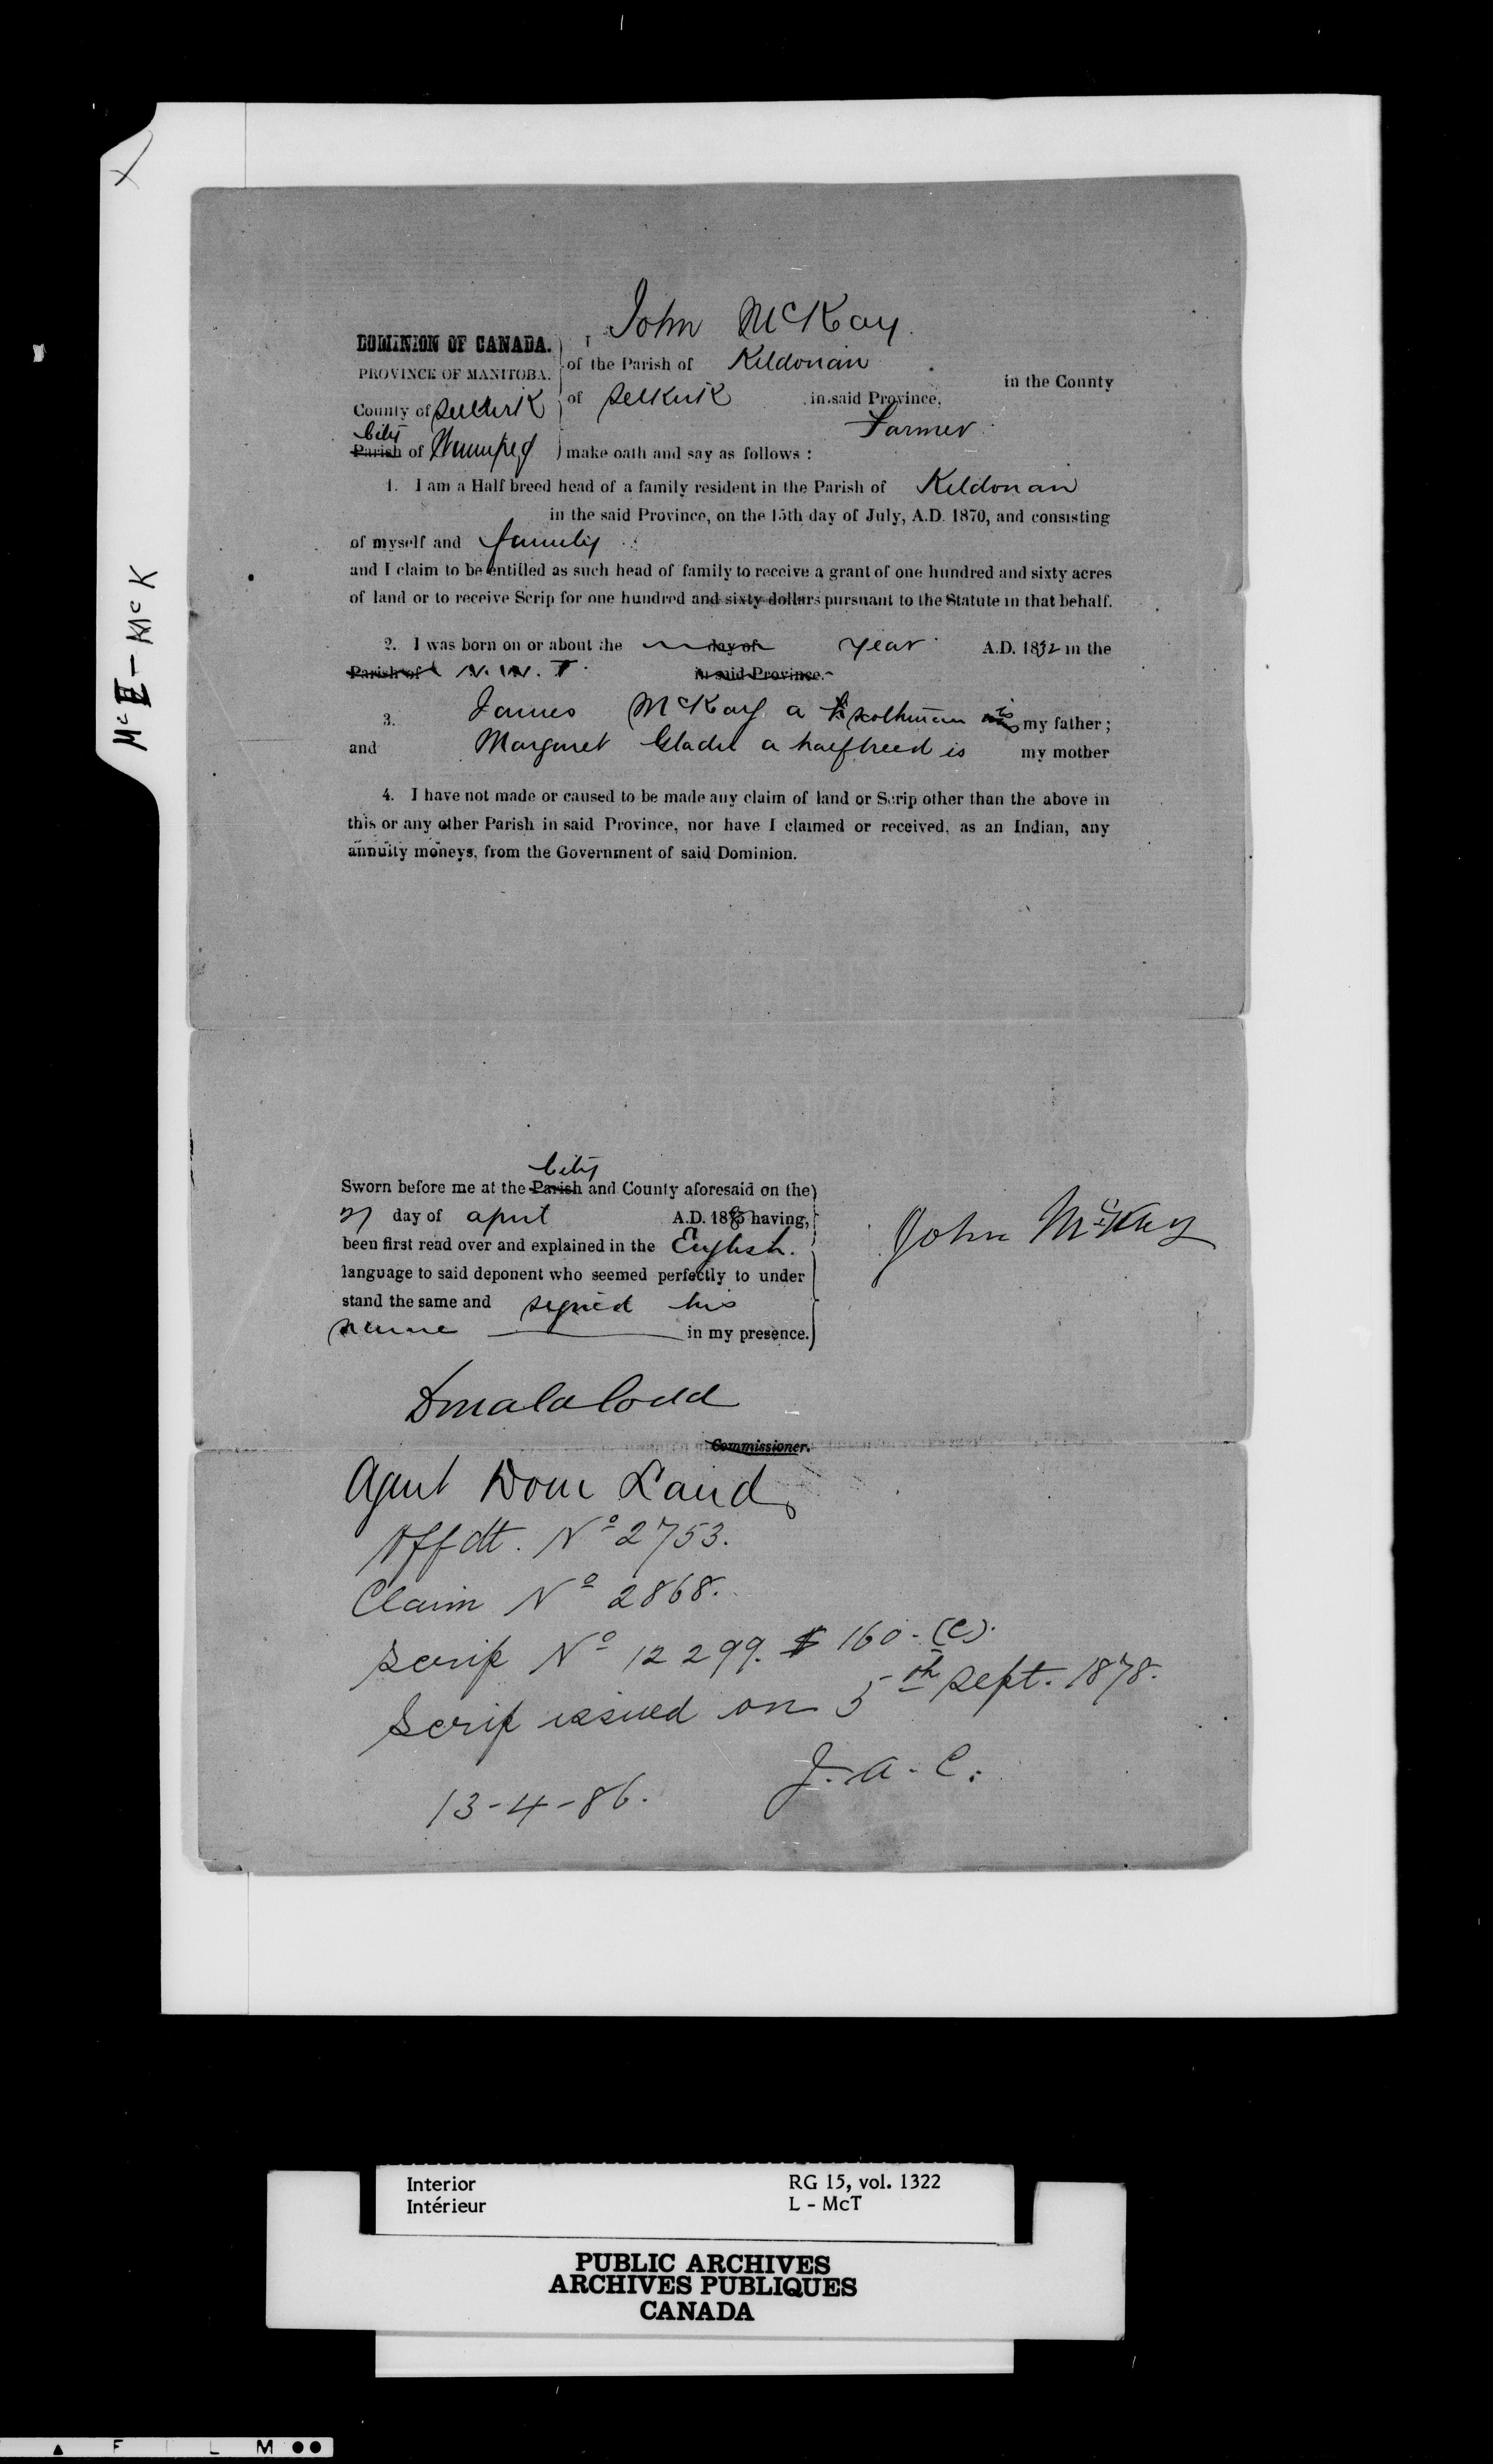 McE - McK
John McKay
DOMINION OF CANADA.
I
PROVINCE OF MANITOBA.
of the Parish of Kildonan
in the County
County of Selkirk
of Selkirk in said Province,
Farmer
City
Parish of Winnipeg
make oath and say as follows :
1. I am a Half breed head of a family resident in the Parish of Kildonan
in the said Province, on the 15th day of July, A.D. 1870, and consisting
of myself and family
and I claim to be entitled as such head of family to receive a grant of one hundred and sixty acres
of land or to receive Scrip for one hundred and sixty dollars pursuant to the Statute in that behalf.
2. I was born on or about the day of year A.D. 1832 in the
Parish of N. W. T. in said Province.
3. James McKay a Scothman is my father ;
and Margaret Gladu a halfbreed is my mother
4. I have not made or caused to be made any claim of land or Scrip other than the above in
this or any other Parish in said Province, nor have I claimed or received, as an Indian, any
annuity moneys, from the Government of said Dominion.
City
Sworn before me at the Parish and County aforesaid on the
day of april A.D. 188 having,
been first read over and explained in the English.
language to said deponent who seemed perfectly to under
stand the same and signed his
name in my presence.
John McKay
Commissioner.
Agent Dom Lands
Affdt. No 2753.
Claim No 2868.
Scrip No 12299. $160- (C).
Scrip issued on 5th Sept. 1878.
J. A. C.
13-4-86.
Interior
Intérieur
RG 15, vol. 1322
L - McT
PUBLIC ARCHIVES
ARCHIVES PUBLIQUES
CANADA
F I L M